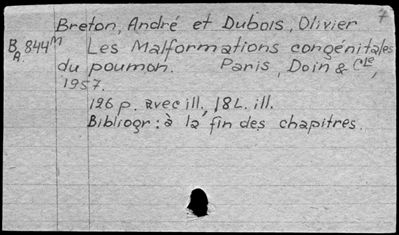 7
Breton, André et Dubois, Olivier
B 844 M Les Malformations congénitales
A. du poumon. Paris, Doin & Cie,
1957.
196 p. avec ill., 18 L. ill.
Bibliogr: à la fin des chapitres.